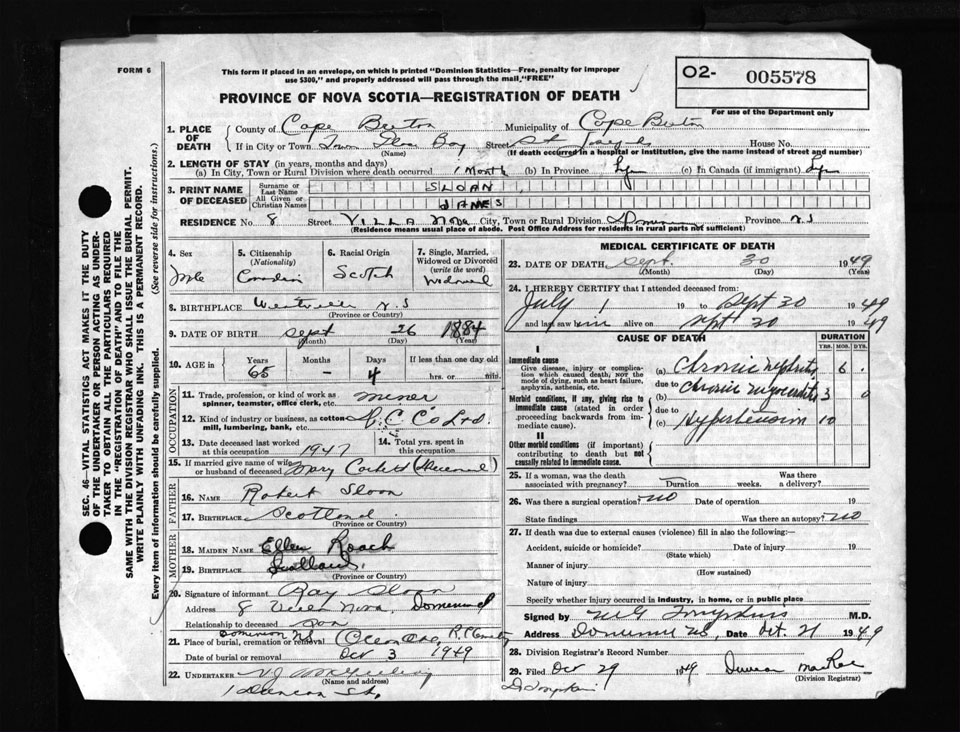 FORM 6
This form if placed in an envelope, on which is printed "Dominion Statistics—Free, penalty for improper
use $300," and properly addressed will pass through the mail "FREE"
O2- 005578
For use of the Department only
PROVINCE OF NOVA SCOTIA—REGISTRATION OF DEATH
1. PLACE OF DEATH
County of Cape Breton Municipality of Cape Breton
If in City or Town Town Glace Bay Street St Joseph's House No.
(Name) (If death occurred in a hospital or institution, give the name instead of street and number)
2. LENGTH OF STAY (in years, months and days)
(a) In City, Town or Rural Division where death occurred 1 Month (b) In Province Life (c) In Canada (if immigrant) Life
3. PRINT NAME OF DECEASED
Surname or Last Name SLOAN,
All Given or Christian Names JAMES
RESIDENCE No. 8 Street VILLA NOVA City, Town or Rural Division Dominion Province N.S
(Residence means usual place of abode. Post Office Address for residents in rural parts not sufficient)
4. Sex Male
5. Citizenship (Nationality) Canadian
6. Racial Origin Scotch
7. Single, Married, Widowed or Divorced (write the word) Widowed
8. BIRTHPLACE Westville N.S
(Province or Country)
9. DATE OF BIRTH Sept 26 1884
(Month) (Day) (Year)
10. AGE in Years 65 Months - Days 4 If less than one day old hrs. or min.
OCCUPATION
11. Trade, profession, or kind of work as spinner, teamster, office clerk, etc. miner
12. Kind of industry or business, as cotton mill, lumbering, bank, etc. D.C Co Ltd.
13. Date deceased last worked at this occupation 1947
14. Total yrs. spent in this occupation
15. If married give name of wife or husband of deceased Mary Corbett (Deceased)
FATHER
16. NAME Robert Sloan
17. BIRTHPLACE Scotland
(Province or Country)
MOTHER
18. MAIDEN NAME Ellen Roach
19. BIRTHPLACE Scotland
(Province or Country)
20. Signature of informant Ray Sloan
Address 8 Villa Nova, Dominion
Relationship to deceased Son
21. Place of burial, cremation or removal Dominion NS
Date of burial or removal Oct 3 1949
22. UNDERTAKER
(Name and address)
MEDICAL CERTIFICATE OF DEATH
23. DATE OF DEATH Sept. 30 1949
(Month) (Day) (Year)
24. I HEREBY CERTIFY that I attended deceased from:
July 1 19 to Sept 30 1949
and last saw him alive on Sept 30 1949
CAUSE OF DEATH DURATION
YRS. MOS. DYS.
I
Immediate cause
Give disease, injury or complication which caused death, not the mode of dying, such as heart failure, asphyxia, asthenia, etc.
(a) Chronic Nephritis 6
due to
Morbid conditions, if any, giving rise to immediate cause (stated in order proceeding backwards from immediate cause).
(b) Chronic Myocarditis 3 0
due to
(c) Hypertension 10
II
Other morbid conditions (if important) contributing to death but not causally related to immediate cause.
25. If a woman, was the death associated with pregnancy? Duration weeks. Was there a delivery?
26. Was there a surgical operation? no Date of operation 19
State findings Was there an autopsy? no
27. If death was due to external causes (violence) fill in also the following:
Accident, suicide or homicide? Date of injury 19
(State which)
Manner of injury
(How sustained)
Nature of injury
Specify whether injury occurred in industry, in home, or in public place
Signed by M.D.
Address Dominion NS, Date Oct. 21 1949
28. Division Registrar's Record Number
29. Filed Oct 29 1949 Duncan MacRae
(Division Registrar)
SEC. 46—VITAL STATISTICS ACT MAKES IT THE DUTY
OF THE UNDERTAKER OR PERSON ACTING AS UNDERTAKER TO OBTAIN ALL THE PARTICULARS REQUIRED
IN THE "REGISTRATION OF DEATH" AND TO FILE THE
SAME WITH THE DIVISION REGISTRAR WHO SHALL ISSUE THE BURIAL PERMIT.
WRITE PLAINLY WITH UNFADING INK. THIS IS A PERMANENT RECORD.
Every item of information should be carefully supplied. (See reverse side for instructions.)